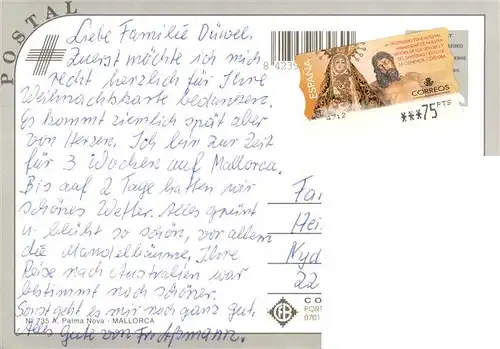 POSTAL
Liebe Familie Düwel.
Zuerst möchte ich mich
recht herzlich für Ihre
Weihnachtskarte bedanken.
Es kommt ziemlich spät aber
von Herzen. Ich bin zur Zeit
für 3 Wochen auf Mallorca.
Bis auf 2 Tage hatten wir
schönes Wetter. Alles grünt
u. blüht so schön, vor allem
die Mandelbäume. Ihre
Reise nach Australien war
bestimmt noch schöner.
Sonst geht es mir noch ganz gut.
Alles Gute von Fr. Aßmann.
735 A, Palma Nova - MALLORCA
ESPAÑA
CORREOS
***75 PTS
4712
Fa
Hei
Nyd
22
CO
POR
0701